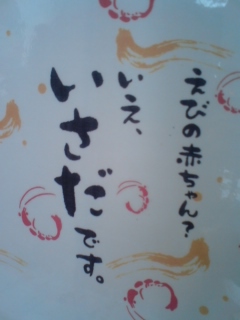 えびの赤ちゃん?
いえ、
いさだです。